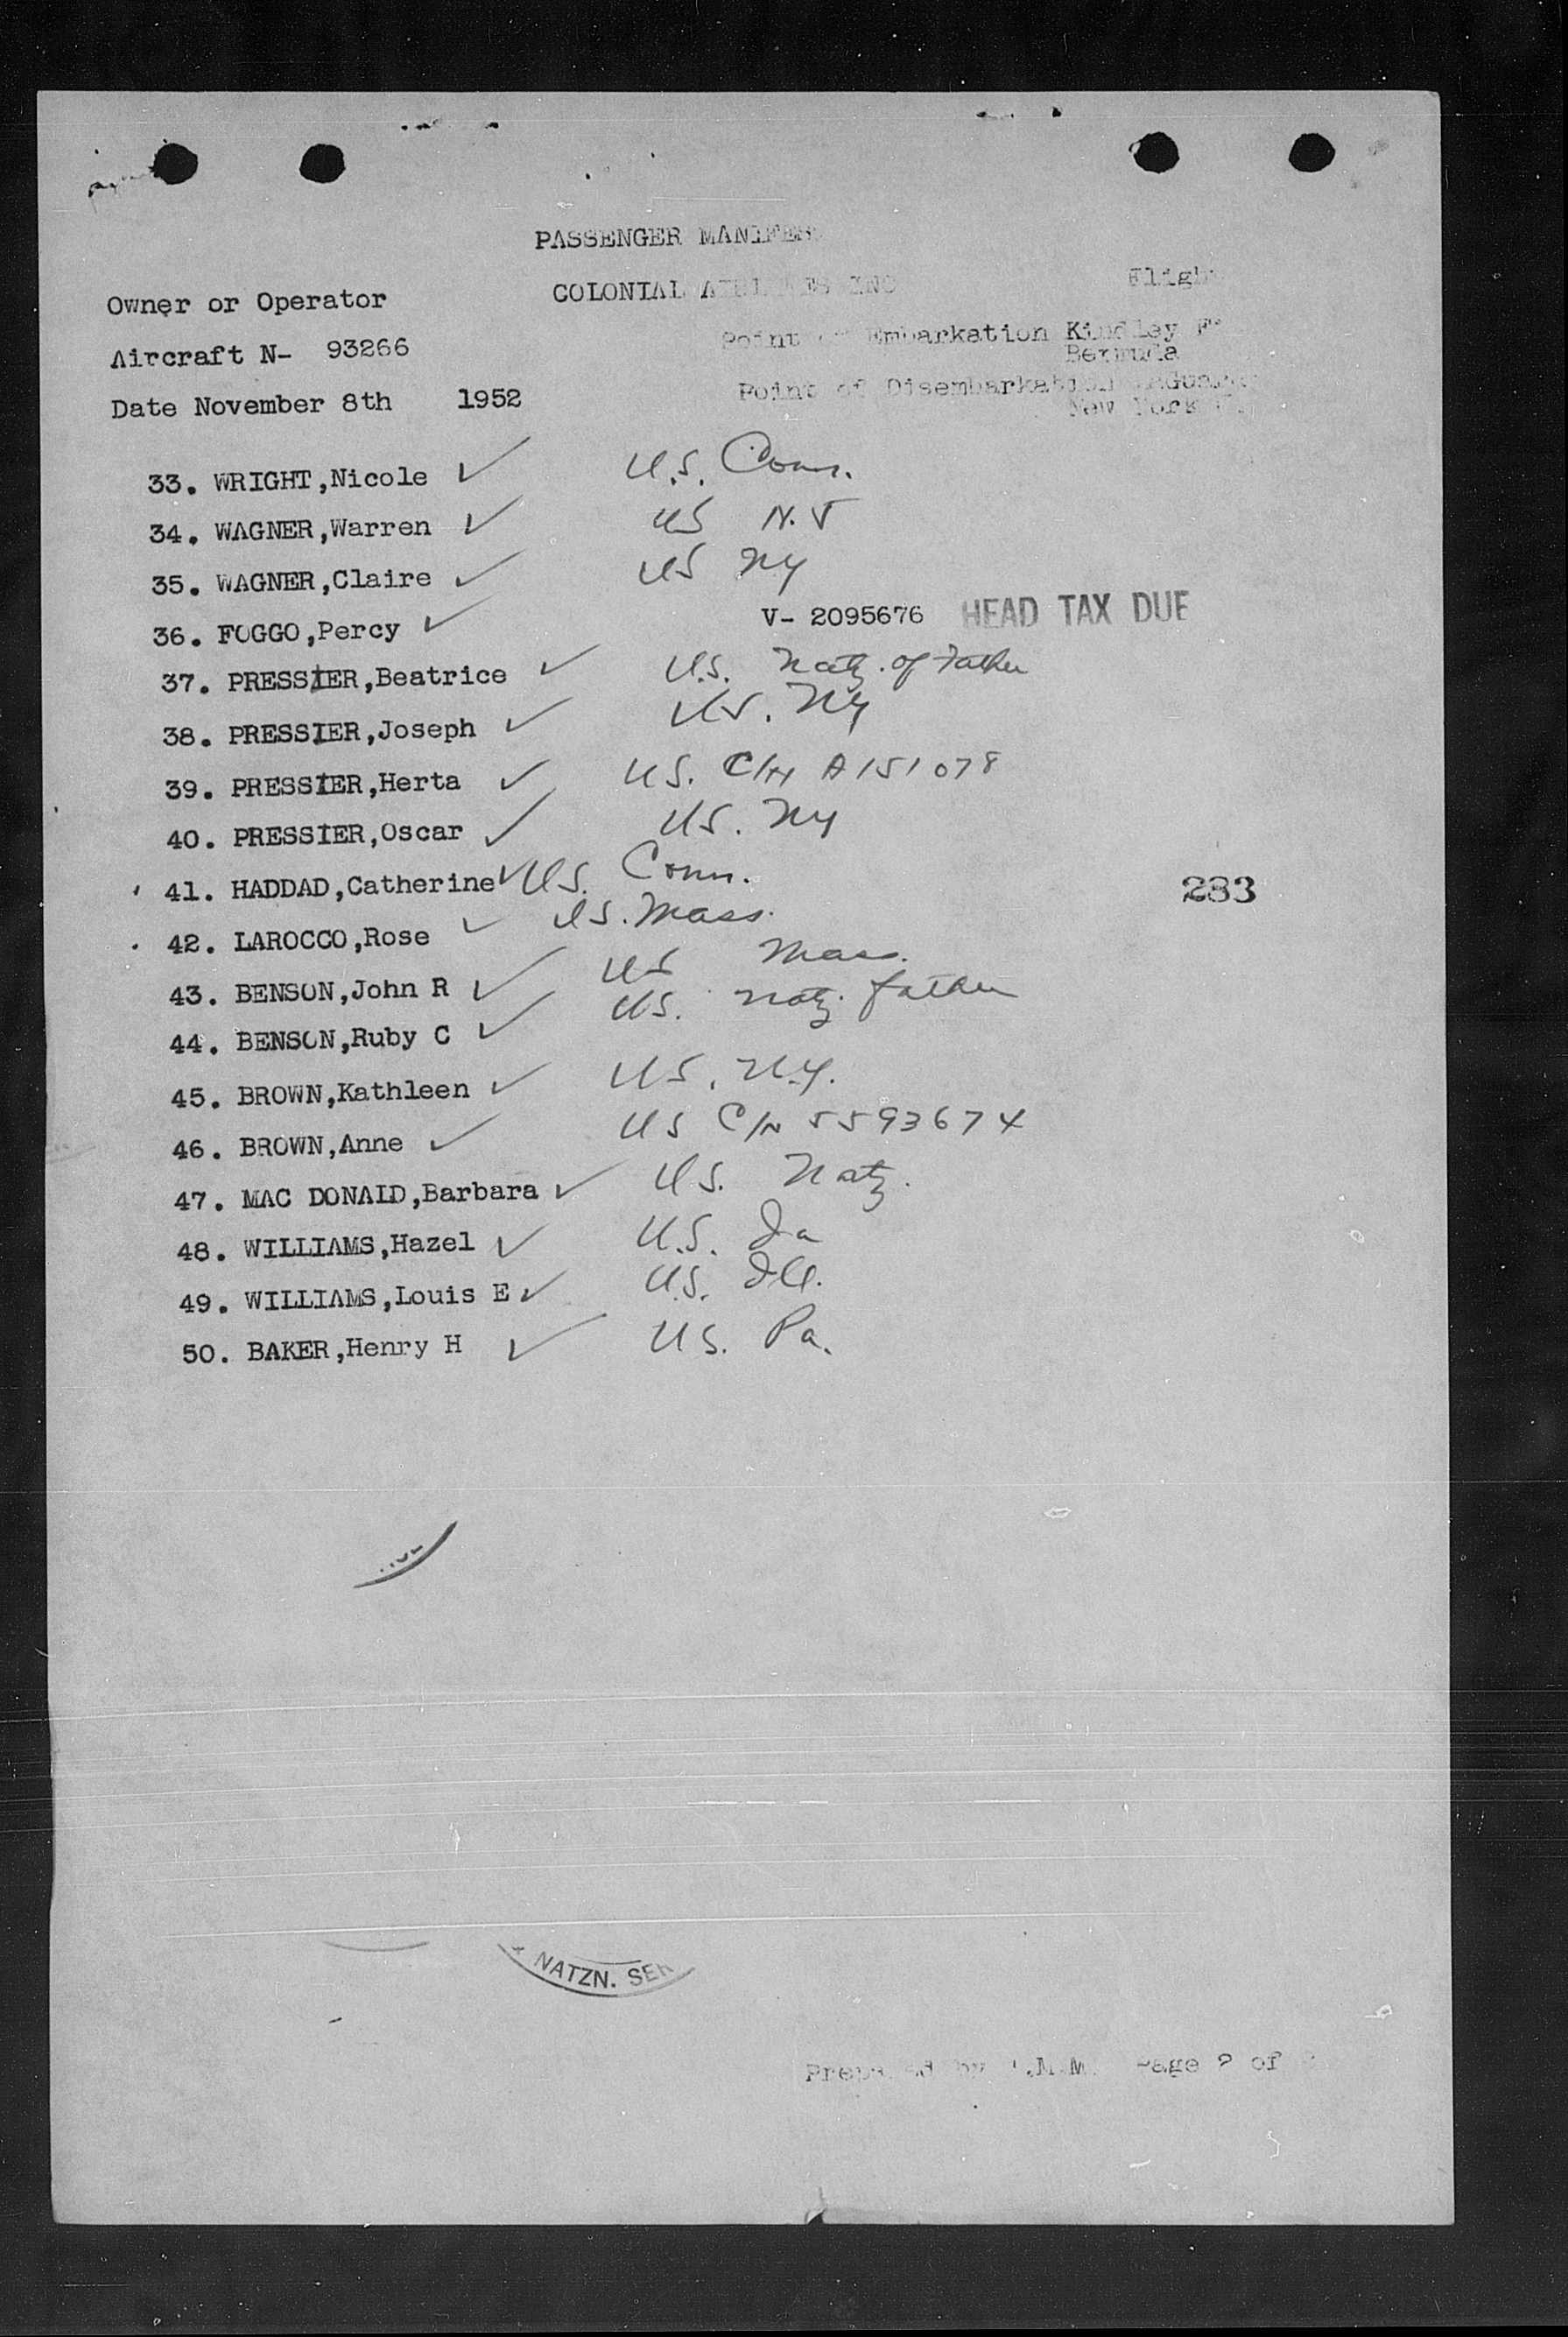 PASSENGER MANIFES
Owner or Operator COLONIAL AIRLINES INC Fligh
Aircraft N- 93266 Point of Embarkation Kindley F
Bermuda
Date November 8th 1952 Point of Disembarkation
New York
33. WRIGHT,Nicole ✓ U.S. Conn.
34. WAGNER,Warren ✓ US N.J
35. WAGNER,Claire ✓ US NY
36. FOGGO,Percy ✓ V- 2095676 HEAD TAX DUE
37. PRESSIER,Beatrice ✓ U.S. Natz. of Father
38. PRESSIER,Joseph ✓ US. NY
39. PRESSIER,Herta ✓ US. C/N A151078
40. PRESSIER,Oscar ✓ US. NY
41. HADDAD,Catherine ✓ US. Conn.
283
42. LAROCCO,Rose ✓ US. Mass.
43. BENSON,John R ✓ US Mass.
44. BENSON,Ruby C ✓ US. Natz. father
45. BROWN,Kathleen ✓ US. N.Y.
46. BROWN,Anne ✓ US C/N 5593674
47. MAC DONALD,Barbara ✓ US. Natz.
48. WILLIAMS,Hazel ✓ U.S. Ia
49. WILLIAMS,Louis E ✓ U.S. Ill.
50. BAKER,Henry H ✓ US. Pa.
NATZN. SER
Prepared by Page 2 of